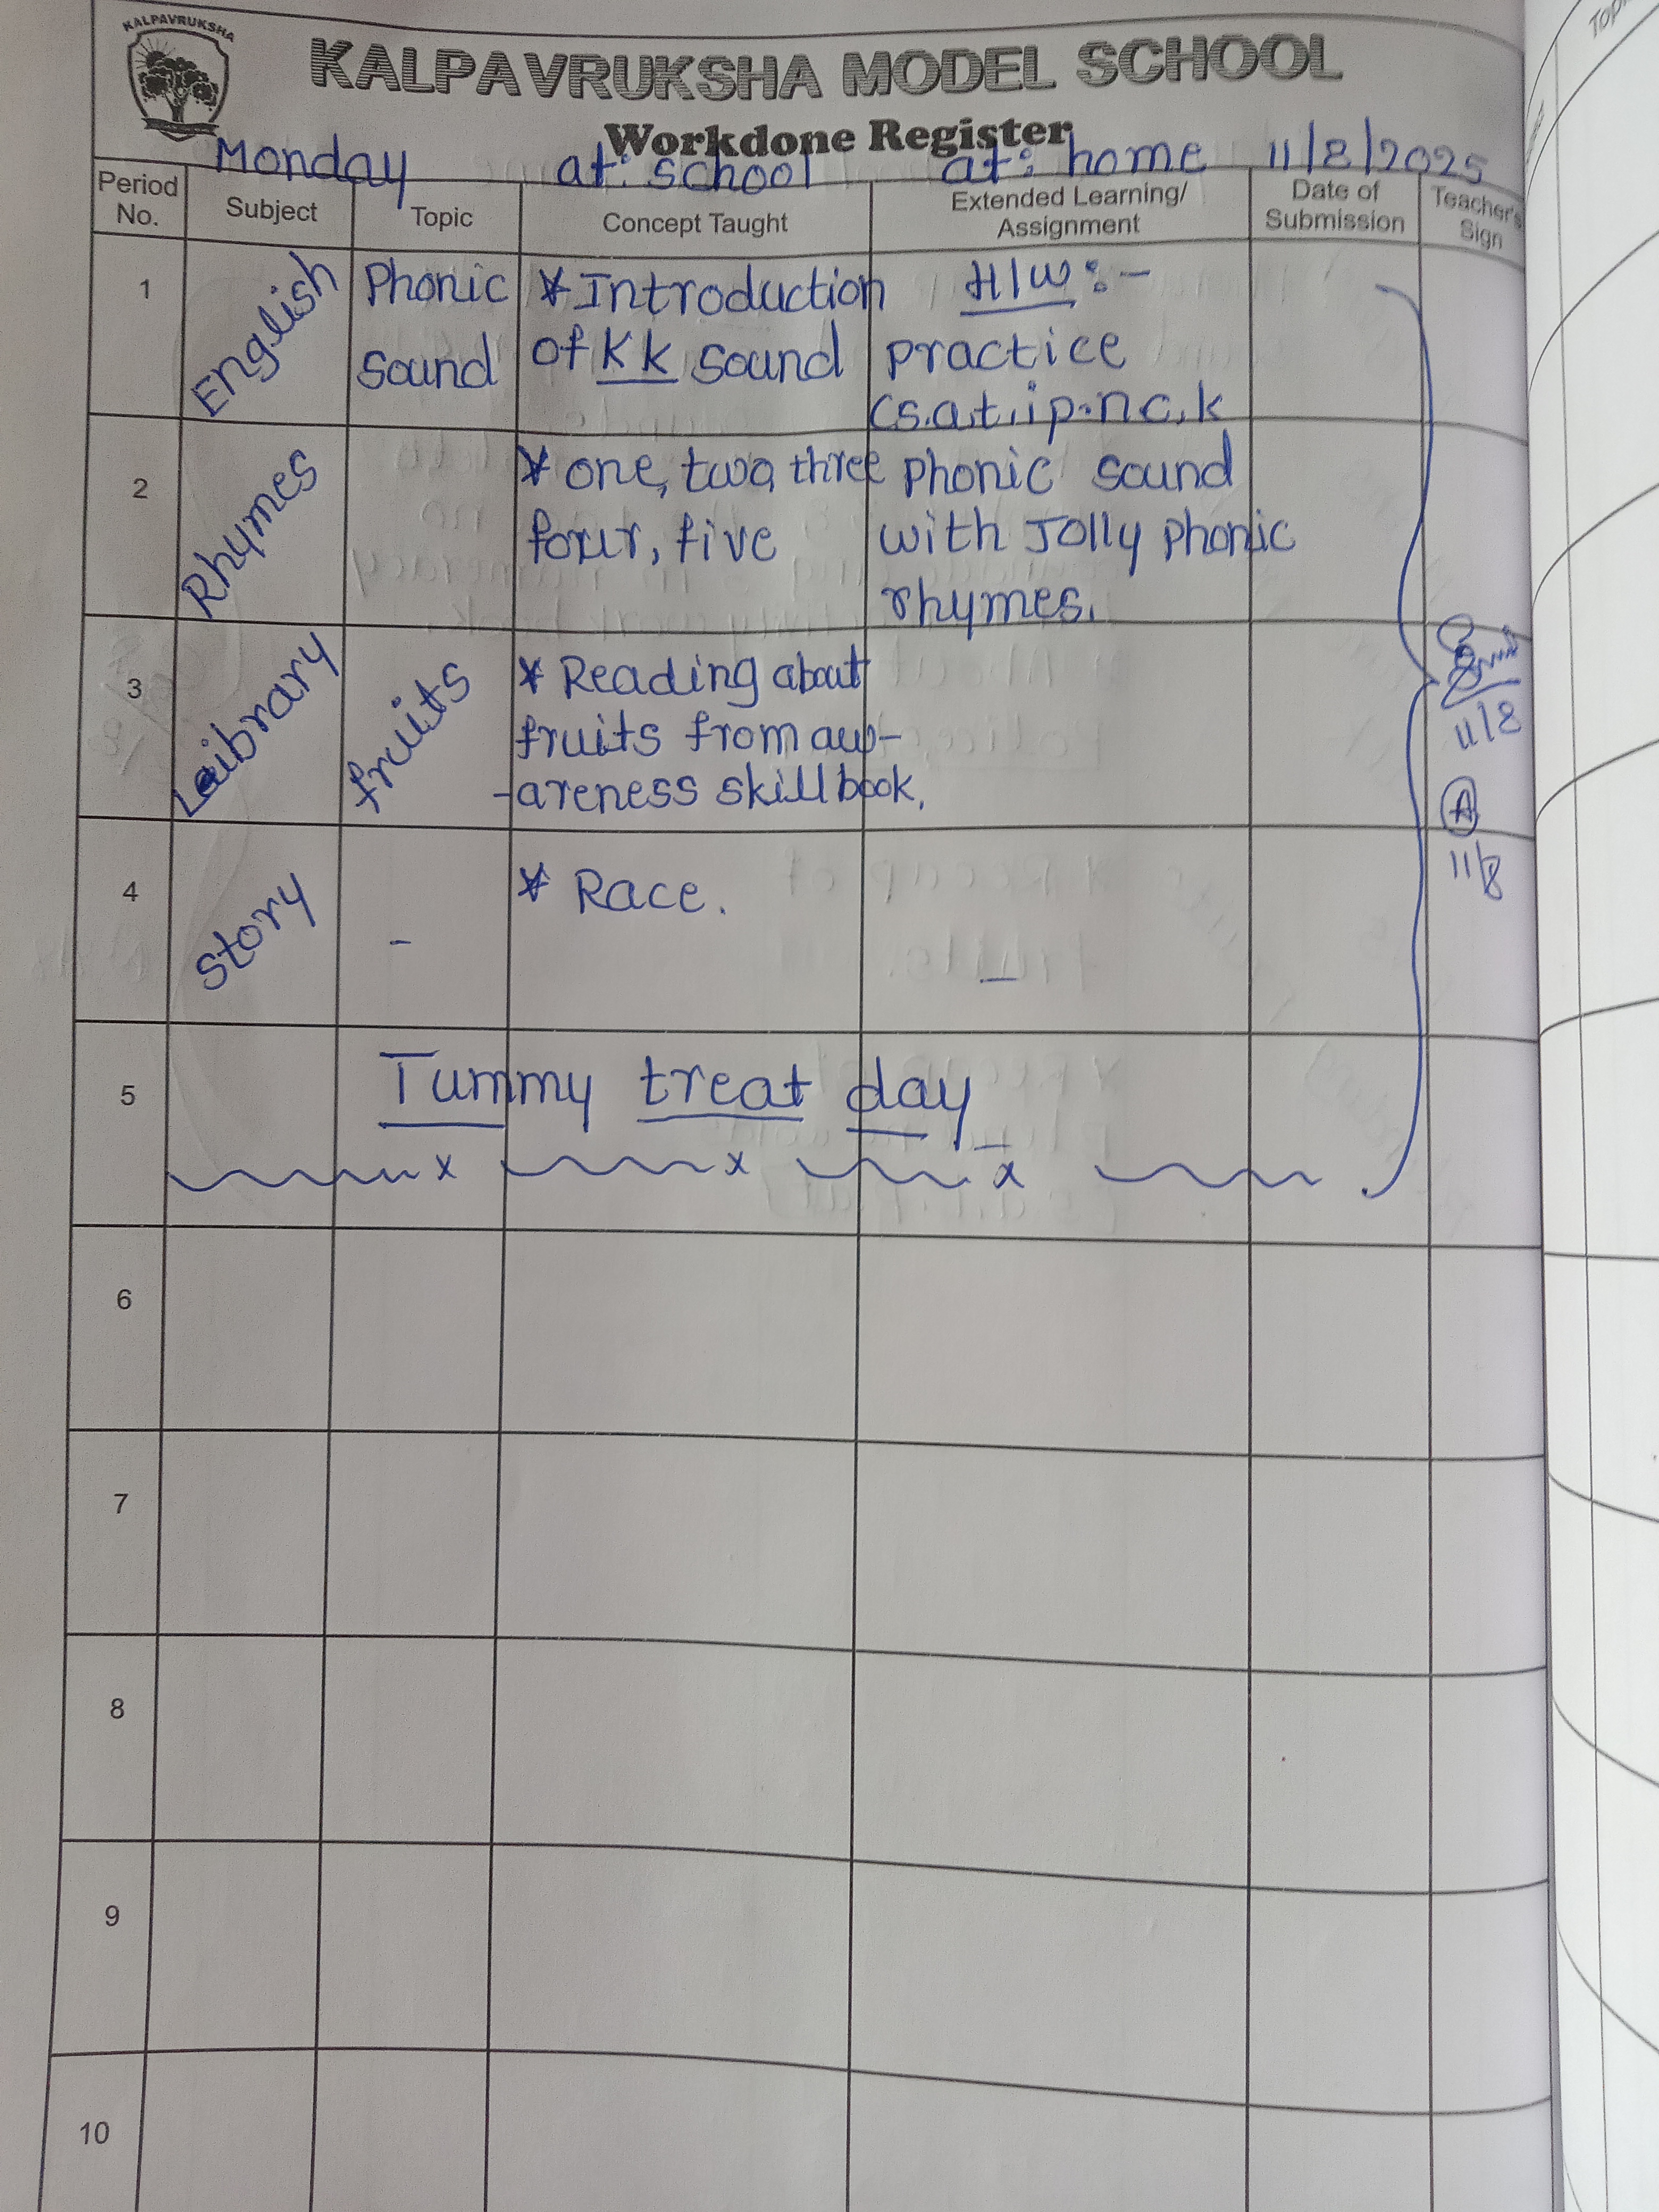 KALPAVRUKSHA
KALPAVRUKSHA MODEL SCHOOL
Workdone Register
Monday at: school at: home 11/8/2025
Period No. Subject Topic Concept Taught Extended Learning/ Assignment Date of Submission Teacher's Sign
1 English Phonic sound
* Introduction
of Kk sound
H/W :-
practice
(s.a.t.i.p.n.c.k
2 Rhymes
* one, two, three
four, five
phonic sound
with Jolly phonic
rhymes.
3 Laibrary fruits
* Reading about
fruits from aw-
-areness skill book.
4 story -
* Race.
-
5 Tummy treat day
x x x
6
7
8
9
10
11/8
A
11/8